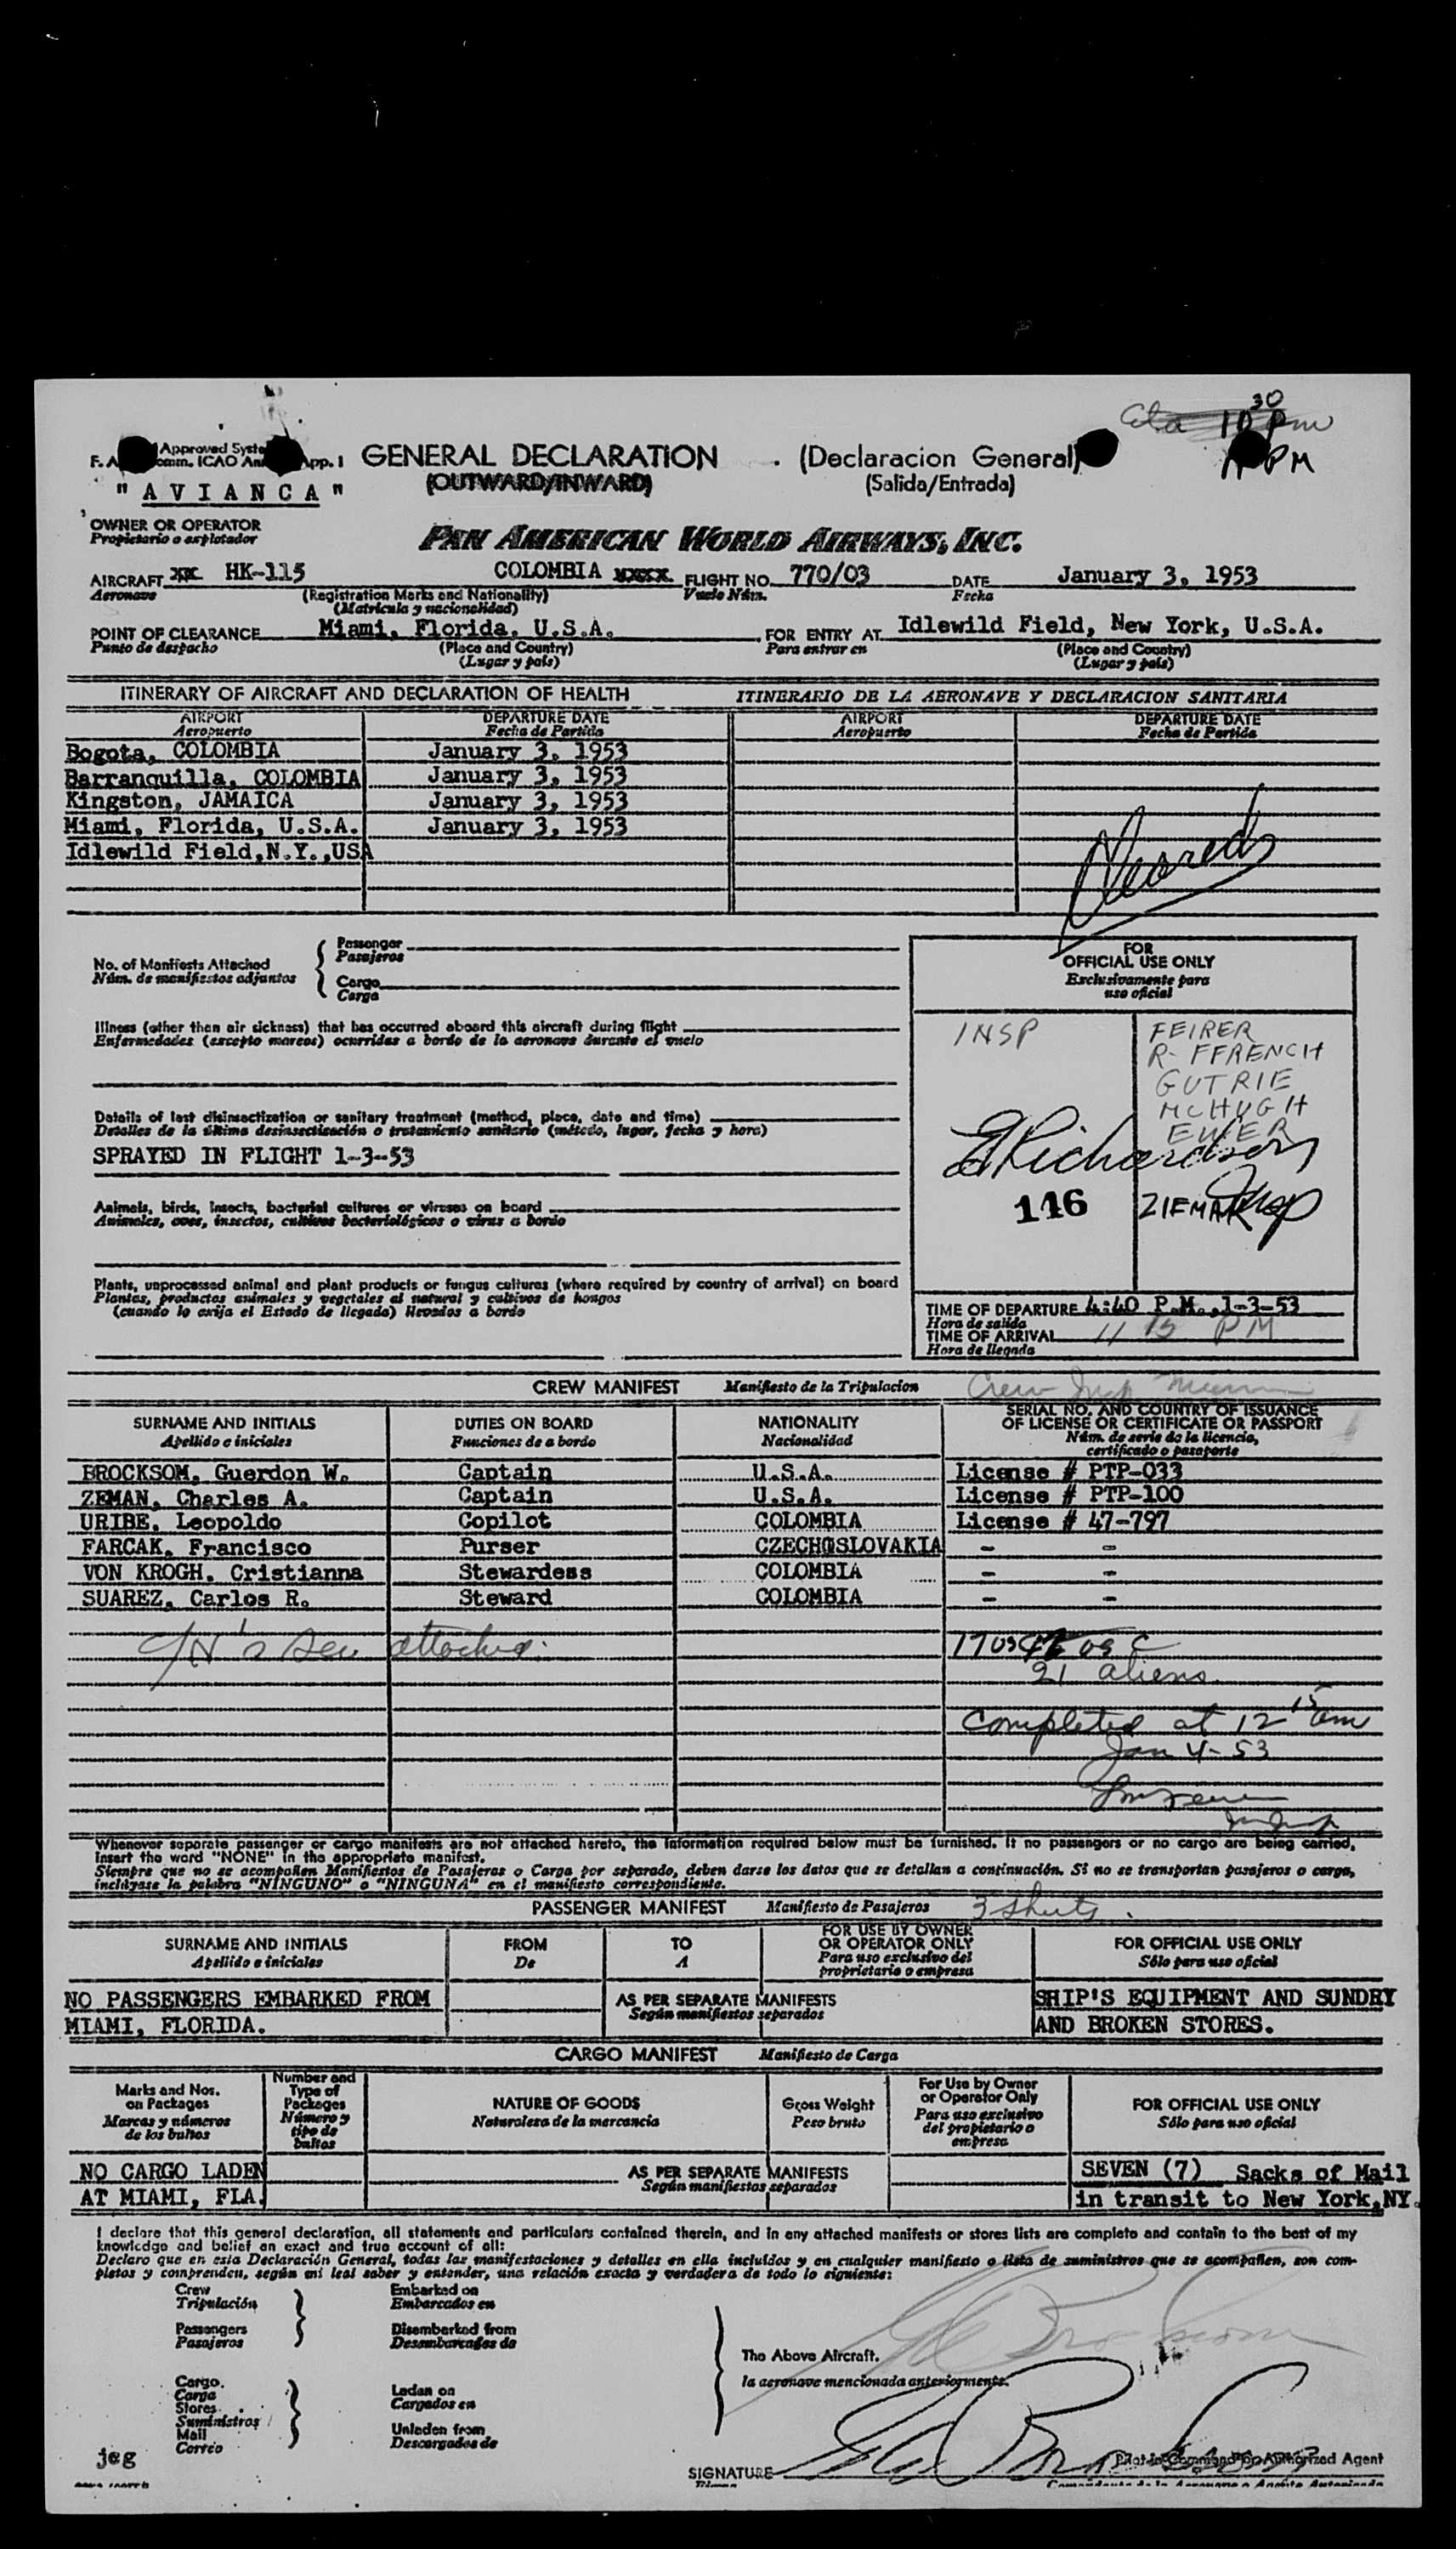 Eta 10 30 PM
11 PM
F.A. Approved Syste
omm. ICAO An App. 1
GENERAL DECLARATION (Declaracion General)
(OUTWARD/INWARD) (Salida/Entrada)
" A V I A N C A "
OWNER OR OPERATOR
Propietario o explotador
PAN AMERICAN WORLD AIRWAYS, INC.
AIRCRAFT HK-115 COLOMBIA FLIGHT NO. 770/03 DATE January 3, 1953
Aeronave (Registration Marks and Nationality) Vuelo Núm. Fecha
(Matricula y nacionalidad)
POINT OF CLEARANCE Miami, Florida, U.S.A. FOR ENTRY AT Idlewild Field, New York, U.S.A.
Punto de despacho (Place and Country) Para entrar en (Place and Country)
(Lugar y país) (Lugar y país)
ITINERARY OF AIRCRAFT AND DECLARATION OF HEALTH ITINERARIO DE LA AERONAVE Y DECLARACION SANITARIA
AIRPORT DEPARTURE DATE AIRPORT DEPARTURE DATE
Aeropuerto Fecha de Partida Aeropuerto Fecha de Partida
Bogota, COLOMBIA January 3, 1953
Barranquilla, COLOMBIA January 3, 1953
Kingston, JAMAICA January 3, 1953
Miami, Florida, U.S.A. January 3, 1953
Idlewild Field,N.Y.,USA
No. of Manifests Attached
Núm. de manifiestos adjuntos
Passenger
Pasajeros
Cargo
Carga
FOR
OFFICIAL USE ONLY
Exclusivamente para
uso oficial
Illness (other than air sickness) that has occurred aboard this aircraft during flight
Enfermedades (excepto mareos) ocurridas a bordo de la aeronave durante el vuelo
INSP
FEIRER
R- FFRENCH
GUTRIE
McHUGH
EWER
E Richardson
Insp
116
ZIEMAK
Details of last disinsectization or sanitary treatment (method, place, date and time)
Detalles de la última desinsectisación o tratamiento sanitario (método, lugar, fecha y hora)
SPRAYED IN FLIGHT 1-3-53
Animals, birds, insects, bacterial cultures or viruses on board
Animales, aves, insectos, cultivos bacteriológicos o virus a bordo
Plants, unprocessed animal and plant products or fungus cultures (where required by country of arrival) on board
Plantas, productos animales y vegetales al natural y cultivos de hongos
(cuando lo exija el Estado de llegada) llevados a bordo
TIME OF DEPARTURE 4:40 P.M.,1-3-53
Hora de salida
TIME OF ARRIVAL 11 15 PM
Hora de llegada
CREW MANIFEST Manifiesto de la Tripulacion Crew Insp
SURNAME AND INITIALS DUTIES ON BOARD NATIONALITY SERIAL NO. AND COUNTRY OF ISSUANCE
OF LICENSE OR CERTIFICATE OR PASSPORT
Apellido e iniciales Funciones de a bordo Nacionalidad Núm. de serie de la licencia,
certificado o pasaporte
BROCKSOM, Guerdon W. Captain U.S.A. License # PTP-033
ZEMAN, Charles A. Captain U.S.A. License # PTP-100
URIBE, Leopoldo Copilot COLOMBIA License # 47-797
FARCAK, Francisco Purser CZECHOSLOVAKIA - -
VON KROGH, Cristianna Stewardess COLOMBIA - -
SUAREZ, Carlos R. Steward COLOMBIA - -
attached.
21 aliens
Completed at 12 15 am
Jan 4-53
Whenever separate passenger or cargo manifests are not attached hereto, the information required below must be furnished. If no passengers or no cargo are being carried,
insert the word "NONE" in the appropriate manifest.
Siempre que no se acompañen Manifiestos de Pasajeros o Carga por separado, deben darse los datos que se detallan a continuación. Si no se transportan pasajeros o carga,
inclúyase la palabra "NINGUNO" o "NINGUNA" en el manifiesto correspondiente.
PASSENGER MANIFEST Manifiesto de Pasajeros 3 sheets.
SURNAME AND INITIALS FROM TO FOR USE BY OWNER
OR OPERATOR ONLY FOR OFFICIAL USE ONLY
Apellido e iniciales De A Para uso exclusivo del
propietario o empresa Sólo para uso oficial
NO PASSENGERS EMBARKED FROM AS PER SEPARATE MANIFESTS SHIP'S EQUIPMENT AND SUNDRY
MIAMI, FLORIDA. Según manifiestos separados AND BROKEN STORES.
CARGO MANIFEST Manifiesto de Carga
Marks and Nos.
on Packages
Marcas y números
de los bultos
Number and
Type of
Packages
Número y
tipo de
bultos
NATURE OF GOODS
Naturaleza de la mercancia
Gross Weight
Peso bruto
For Use by Owner
or Operator Only
Para uso exclusivo
del propietario o
empresa
FOR OFFICIAL USE ONLY
Sólo para uso oficial
NO CARGO LADEN AS PER SEPARATE MANIFESTS SEVEN (7) Sacks of Mail
AT MIAMI, FLA. Según manifiestos separados in transit to New York,NY.
I declare that this general declaration, all statements and particulars contained therein, and in any attached manifests or stores lists are complete and contain to the best of my
knowledge and belief an exact and true account of all:
Declaro que en esta Declaración General, todas las manifestaciones y detalles en ella incluídos y en cualquier manifiesto o lista de suministros que se acompañen, son com-
pletos y comprenden, según mi leal saber y entender, una relación exacta y verdadera de todo lo siguiente:
Crew Embarked on
Tripulación Embarcados en
Passengers Disembarked from
Pasajeros Desembarcados de
The Above Aircraft.
la aeronave mencionada anteriormente.
Cargo.
Carga Laden on
Stores Cargados en
Suministros
Mail Unladen from
Correo Descargados de
jeg
SIGNATURE Pilot in Command or Authorized Agent
Firma Comandante de la Aeronave o Agente Autorizado